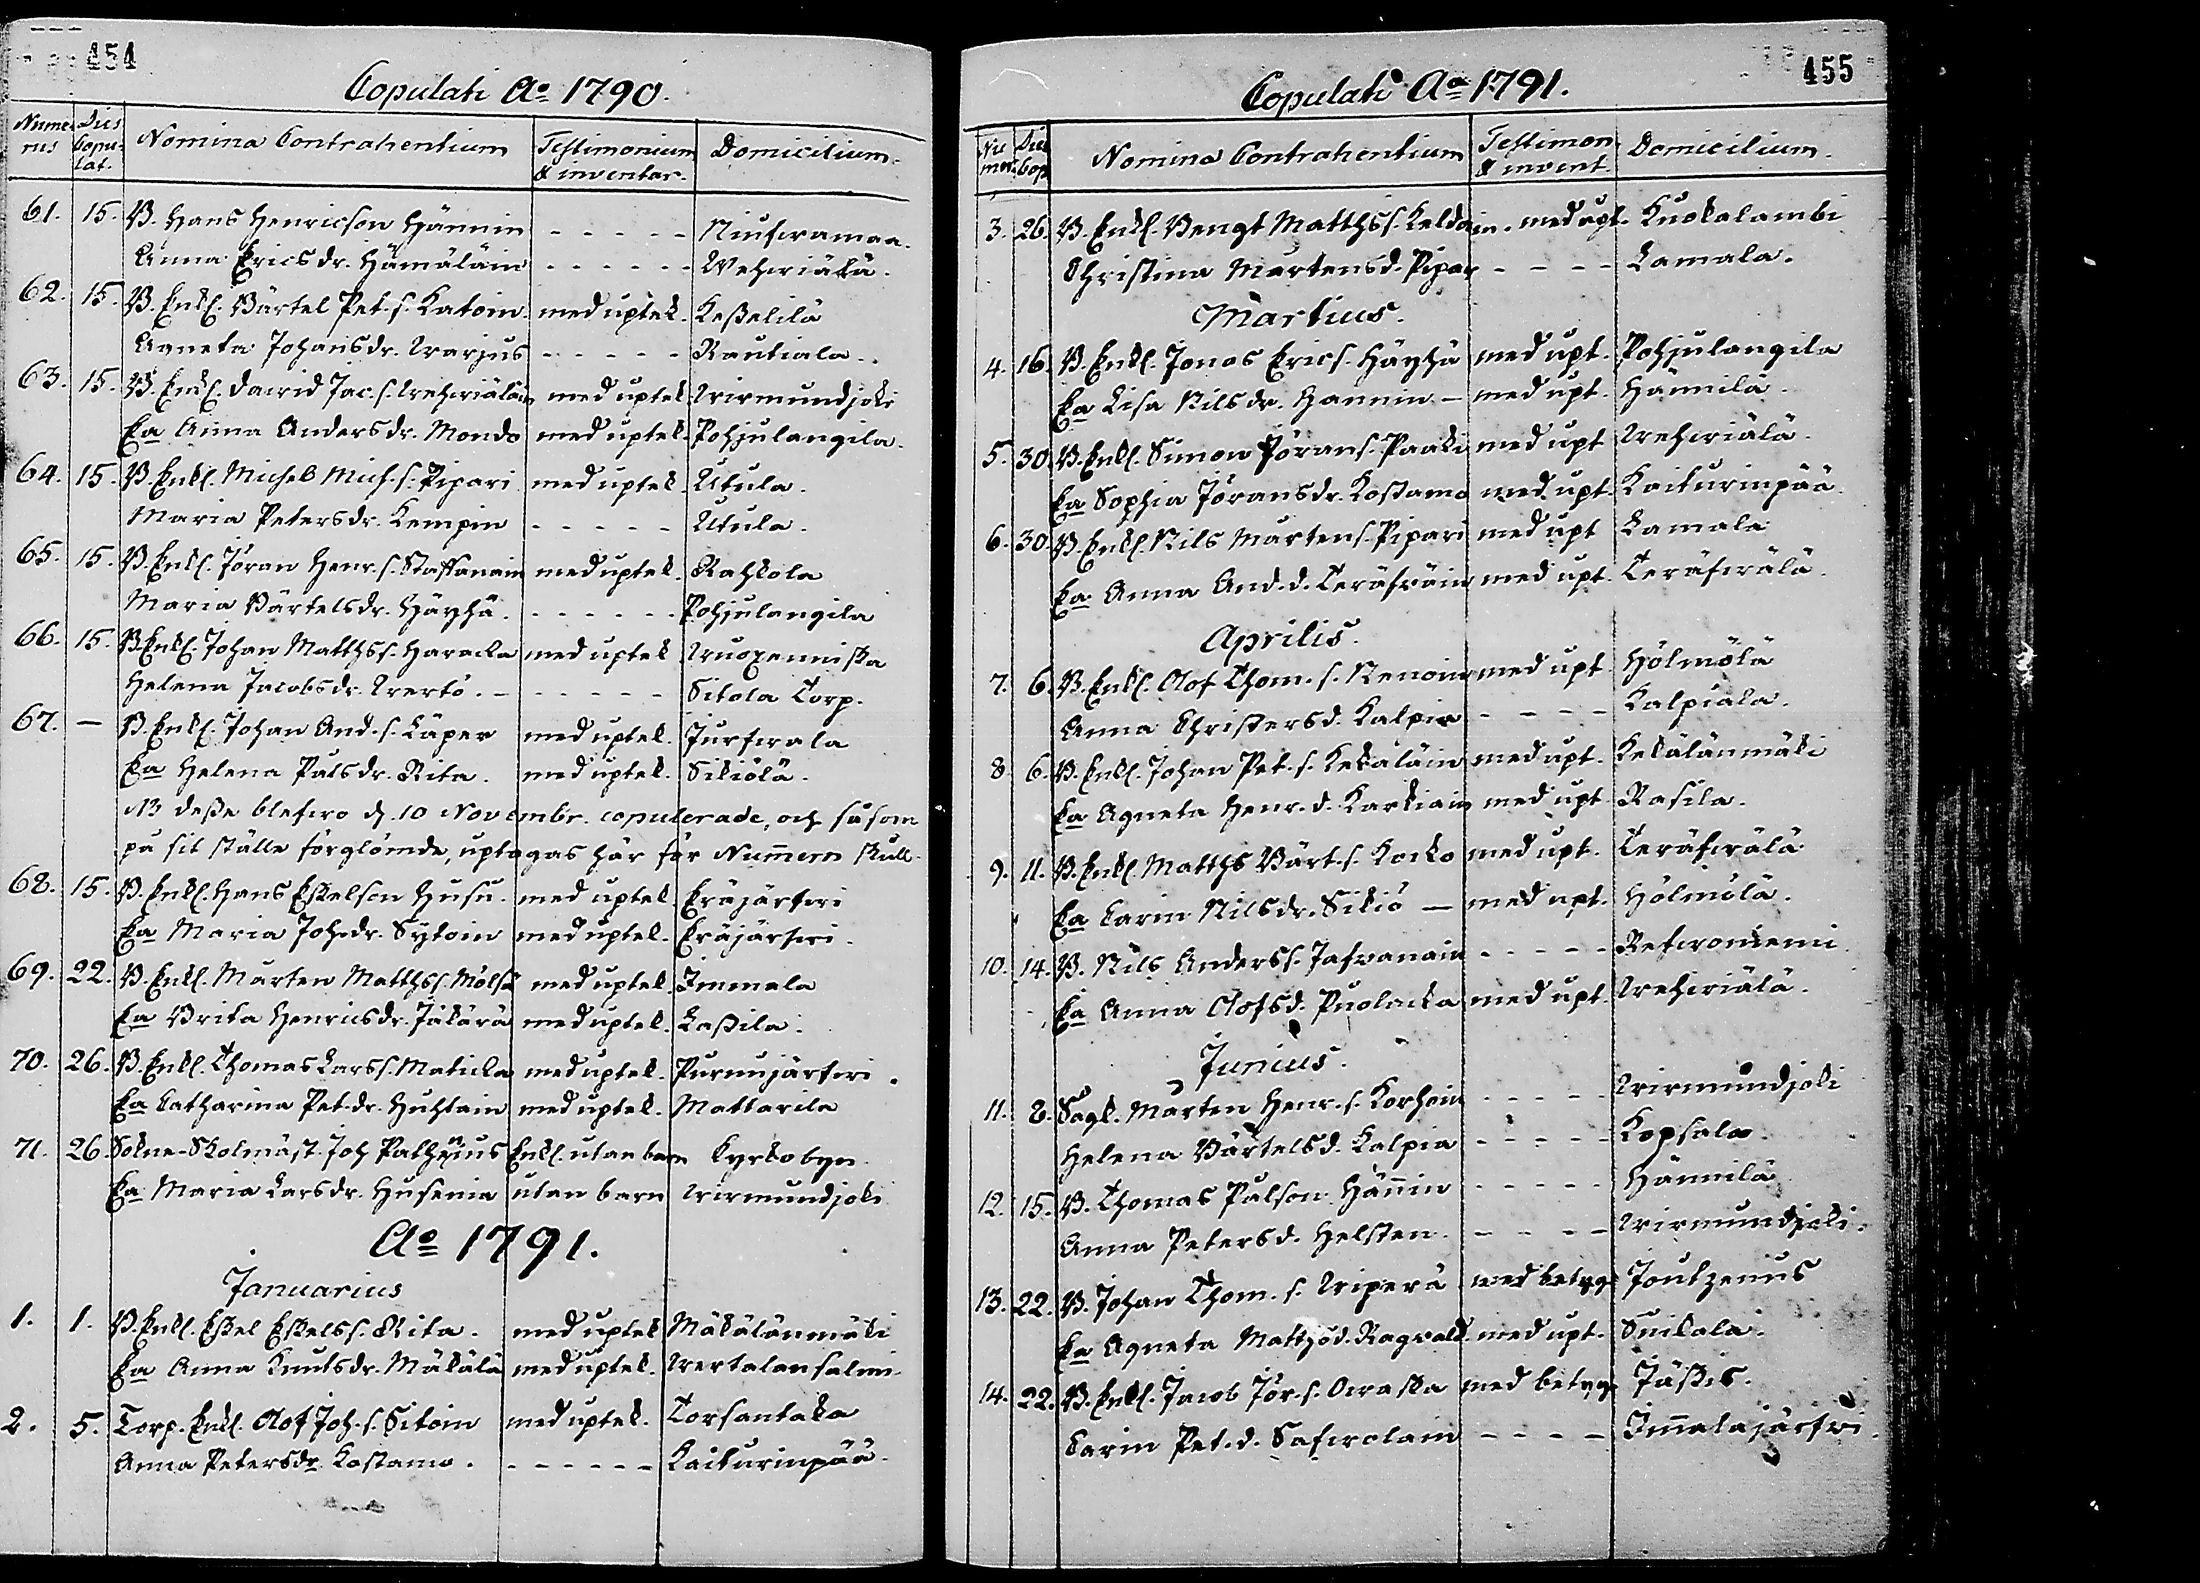 454
Copulati Ao 1790.
Numerus Dies Copulat. Nomina Contrahentium Testimonium & inventar. Domicilium.
61. 15. B. Hans Henricson Hännin - - - - - Niuswamaa.
Anna Ericsdr. Hämäläin - - - - - - Wehwiälä.
62. 15. B. Enkl. Bärtel Pet. s. Katoin. med uptek. Keßelilä
Agneta Johansdr. Warjus - - - - - Rautiala.
63. 15. B. Enkl. Dawid Jac. s. Wehwiäläin med uptek. Wirmundjoki
Ea Anna Andersdr. Mondo med uptek. Pohjulangila.
64. 15. B. Enkl. Michel Mich. s. Pipari med uptek. Utula.
Maria Petersdr. Kempin - - - - - Utula.
65. 15. B. Enkl. Jöran Henr. s. Staffanain med uptek. Rahkola
Maria Bärtelsdr. Häyhä. - - - - - - Pohjulangila
66. 15. B. Enkl. Johan Matthss. Haracka med uptek Wuoxenniska
Helena Jacobsdr. Wertö. - - - - - - Sitola Torp.
67. — B. Enkl. Johan And. s. Käper med uptek. Jurfwala
Ea Helena Pålsdr. Rita. med uptek. Sikiölä.
NB deße blefwo d. 10 Novembr. copulerade, och såsom
på sit ställe förglömde, uptagas här för Num̄ern skull.
68. 15. B. Enkl. Hans Eskelson Husu. med uptek. Eräjärfwi
Ea Maria Joh. dr. Sytoin med uptek. Eräjärfwi.
69. 22. B. Enkl. Mårten Matthss. Mölsä med uptek. Immala
Ea Brita Henricsdr. Jäkärä med uptek. Laßila.
70. 26. B. Enkl. Thomas Larss. Maticka med uptek. Purnujärfwi.
Ea Catharina Pet. dr. Huhtain med uptek. Mattarila
71. 26. Sokne-Skolmäst. Joh Enkl. utan barn Kyrkobyn.
Ea Maria Larsdr. Husenia utan barn Wirmundjoki
Ao 1791.
Januarius
1. 1. B. Enkl. Eskel Eskelss. Rita. med uptek Mäkälänmäki
Ea Anna Knutsdr. Mäkälä med uptek. Wertalansalmi
2. 5. Torp. Enkl. Olof Joh. s. Sitoin med uptek. Torsantaka
Anna Petersdr. Kostamo. - - - - - - Kaiturinpää.
455
Copulati Ao 1791.
Numer. Dies Cop. Nomina Contrahentium Testimon. & invent. Domicilium.
3. 26. B. Enkl. Bengt Matthss. Keldain. med upt. Kuokalambi
Christina Mårtensd. Pipar - - - - Lamala.
Martius.
4. 16. B. Enkl. Jonas Erics. Häyhä med upt. Pohjulangila
Ea Lisa Nilsdr. Hannin — med upt. Hännilä.
5. 30. B. Enkl. Simon Jörans. Paaki med upt Wehwiälä.
Ea Sophia Jöransdr. Kostamo med upt. Kaiturinpää.
6. 30. B. Enkl. Nils Mårtens. Pipari med upt Lamala
Ea Anna And. d. Teräfwäin med upt. Teräfwälä.
Aprilis.
7. 6. B. Enkl. Olof Thom. s. Renoin med upt Hölmölä
Anna Christersd. Kalpia - - - - Kalpiala.
8 6. B. Enkl. Johan Pet. s. Kekäläin med upt. Kekälänmäki
Ea Agneta Henr. d. Karkiain med upt Rasila.
9. 11. B. Enkl. Matths Bärt. s. Kocko med upt. Teräfwälä
Ea Carin Nilsdr. Sikiö — med upt. Hölmölä.
10. 14. B. Nils Anderss. Jafwanain - - - - - Refwoniemi
Ea Anna Olofsd. Puolacka med upt. Wehwiälä.
Junius.
11. 2. Sagl. Mårten Henr. s. Korhoin - - - - - Wirmundjoki
Helena Bärtelsd. Kalpia - - - - - Kopsala.
12. 15. B. Thomas Pålson Hän̄in - - - - - Hännilä
Anna Petersd. Helsten. - - - - Wirmundjoki.
13. 22. B. Johan Thom. s. Wiperä med betyg Joutzenus
Ea Agneta Matthsd. Ragvald med upt. Suikala.
14. 22. B. Enkl. Jacob Jör. s. Owaska med betyg Jäskis.
Carin Pet. d. Safwolain - - - - Im̄alajärfwi.